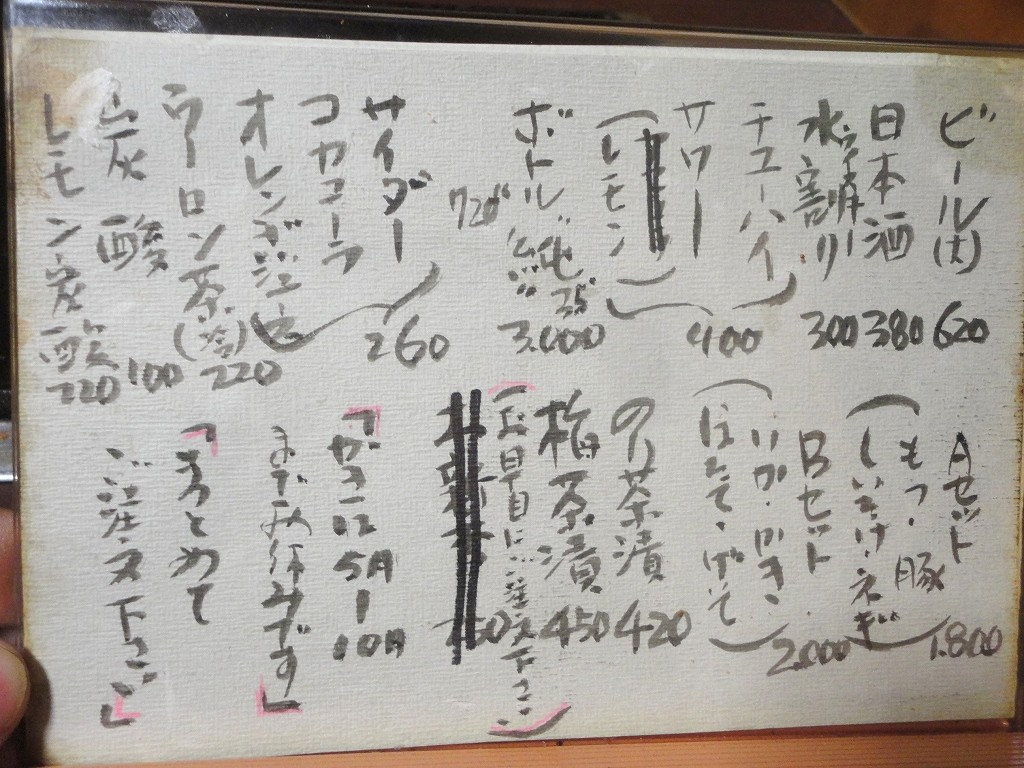 ビール(大) 620
日本酒 380
水割り 300
チューハイ
サワー 400
(レモン)
ボトル 純 35° 3.000
720
サイダー
コカコーラ 260
オレンジ
ウーロン茶(冷) 220
炭酸 100
レモン炭酸 220
Aセット 1.800
(もつ・豚
しいたけ・ネギ)
Bセット 2.000
(いか・かき・
ほたて・げそ)
のり茶漬 420
梅茶漬 450
(お早目にご注文下さい)
「かきは
5月ー10月
までお休みです」
「まとめて
ご注文下さい」